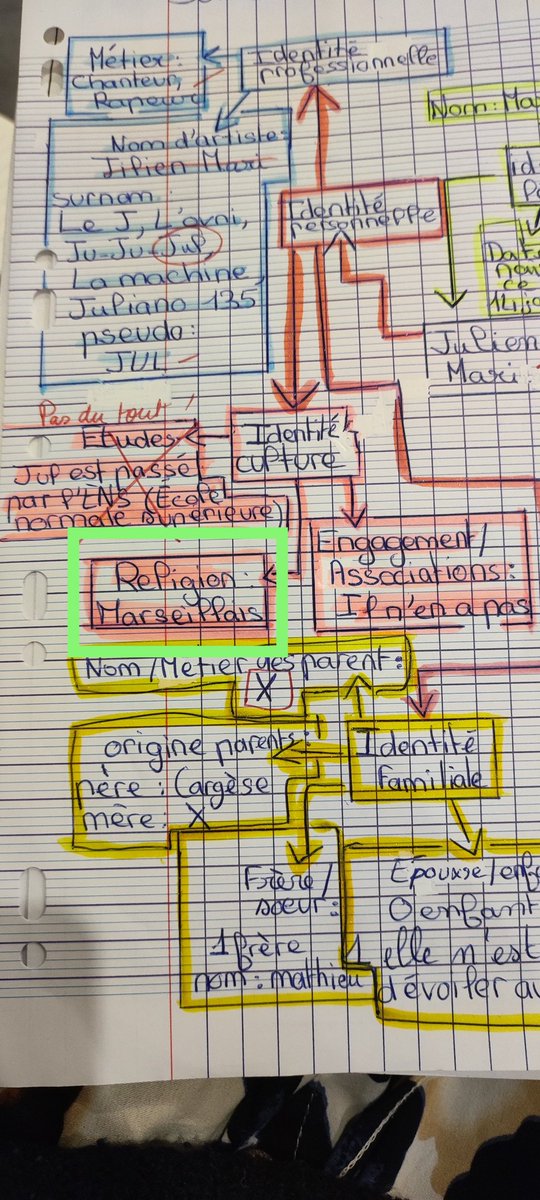 Métier :
Chanteur,
Rapeur
Identité
professionnelle
Nom: Ma
Nom d'artiste:
Julien Mari
surnom :
Le J, L'ovni,
Ju-Ju, Jul
La machine
Juliano 135
pseudo:
JUL
Identité
personnelle
Dat
Julien
Mari
Pas du tout !
Etudes
Jul est passé
par l'ENS (École
normale supérieure)
Identité
culture
Engagement/
Associations :
Il n'en a pas
Religion :
Marseillais
Nom/Métier des parent :
X
origine parents :
père : Cargèse
mère : X
Identité
familiale
Frère/
soeur :
1 frère
nom : mathieu
Epouxse/enf
0 enfant
1 elle n'est
dévoiler au